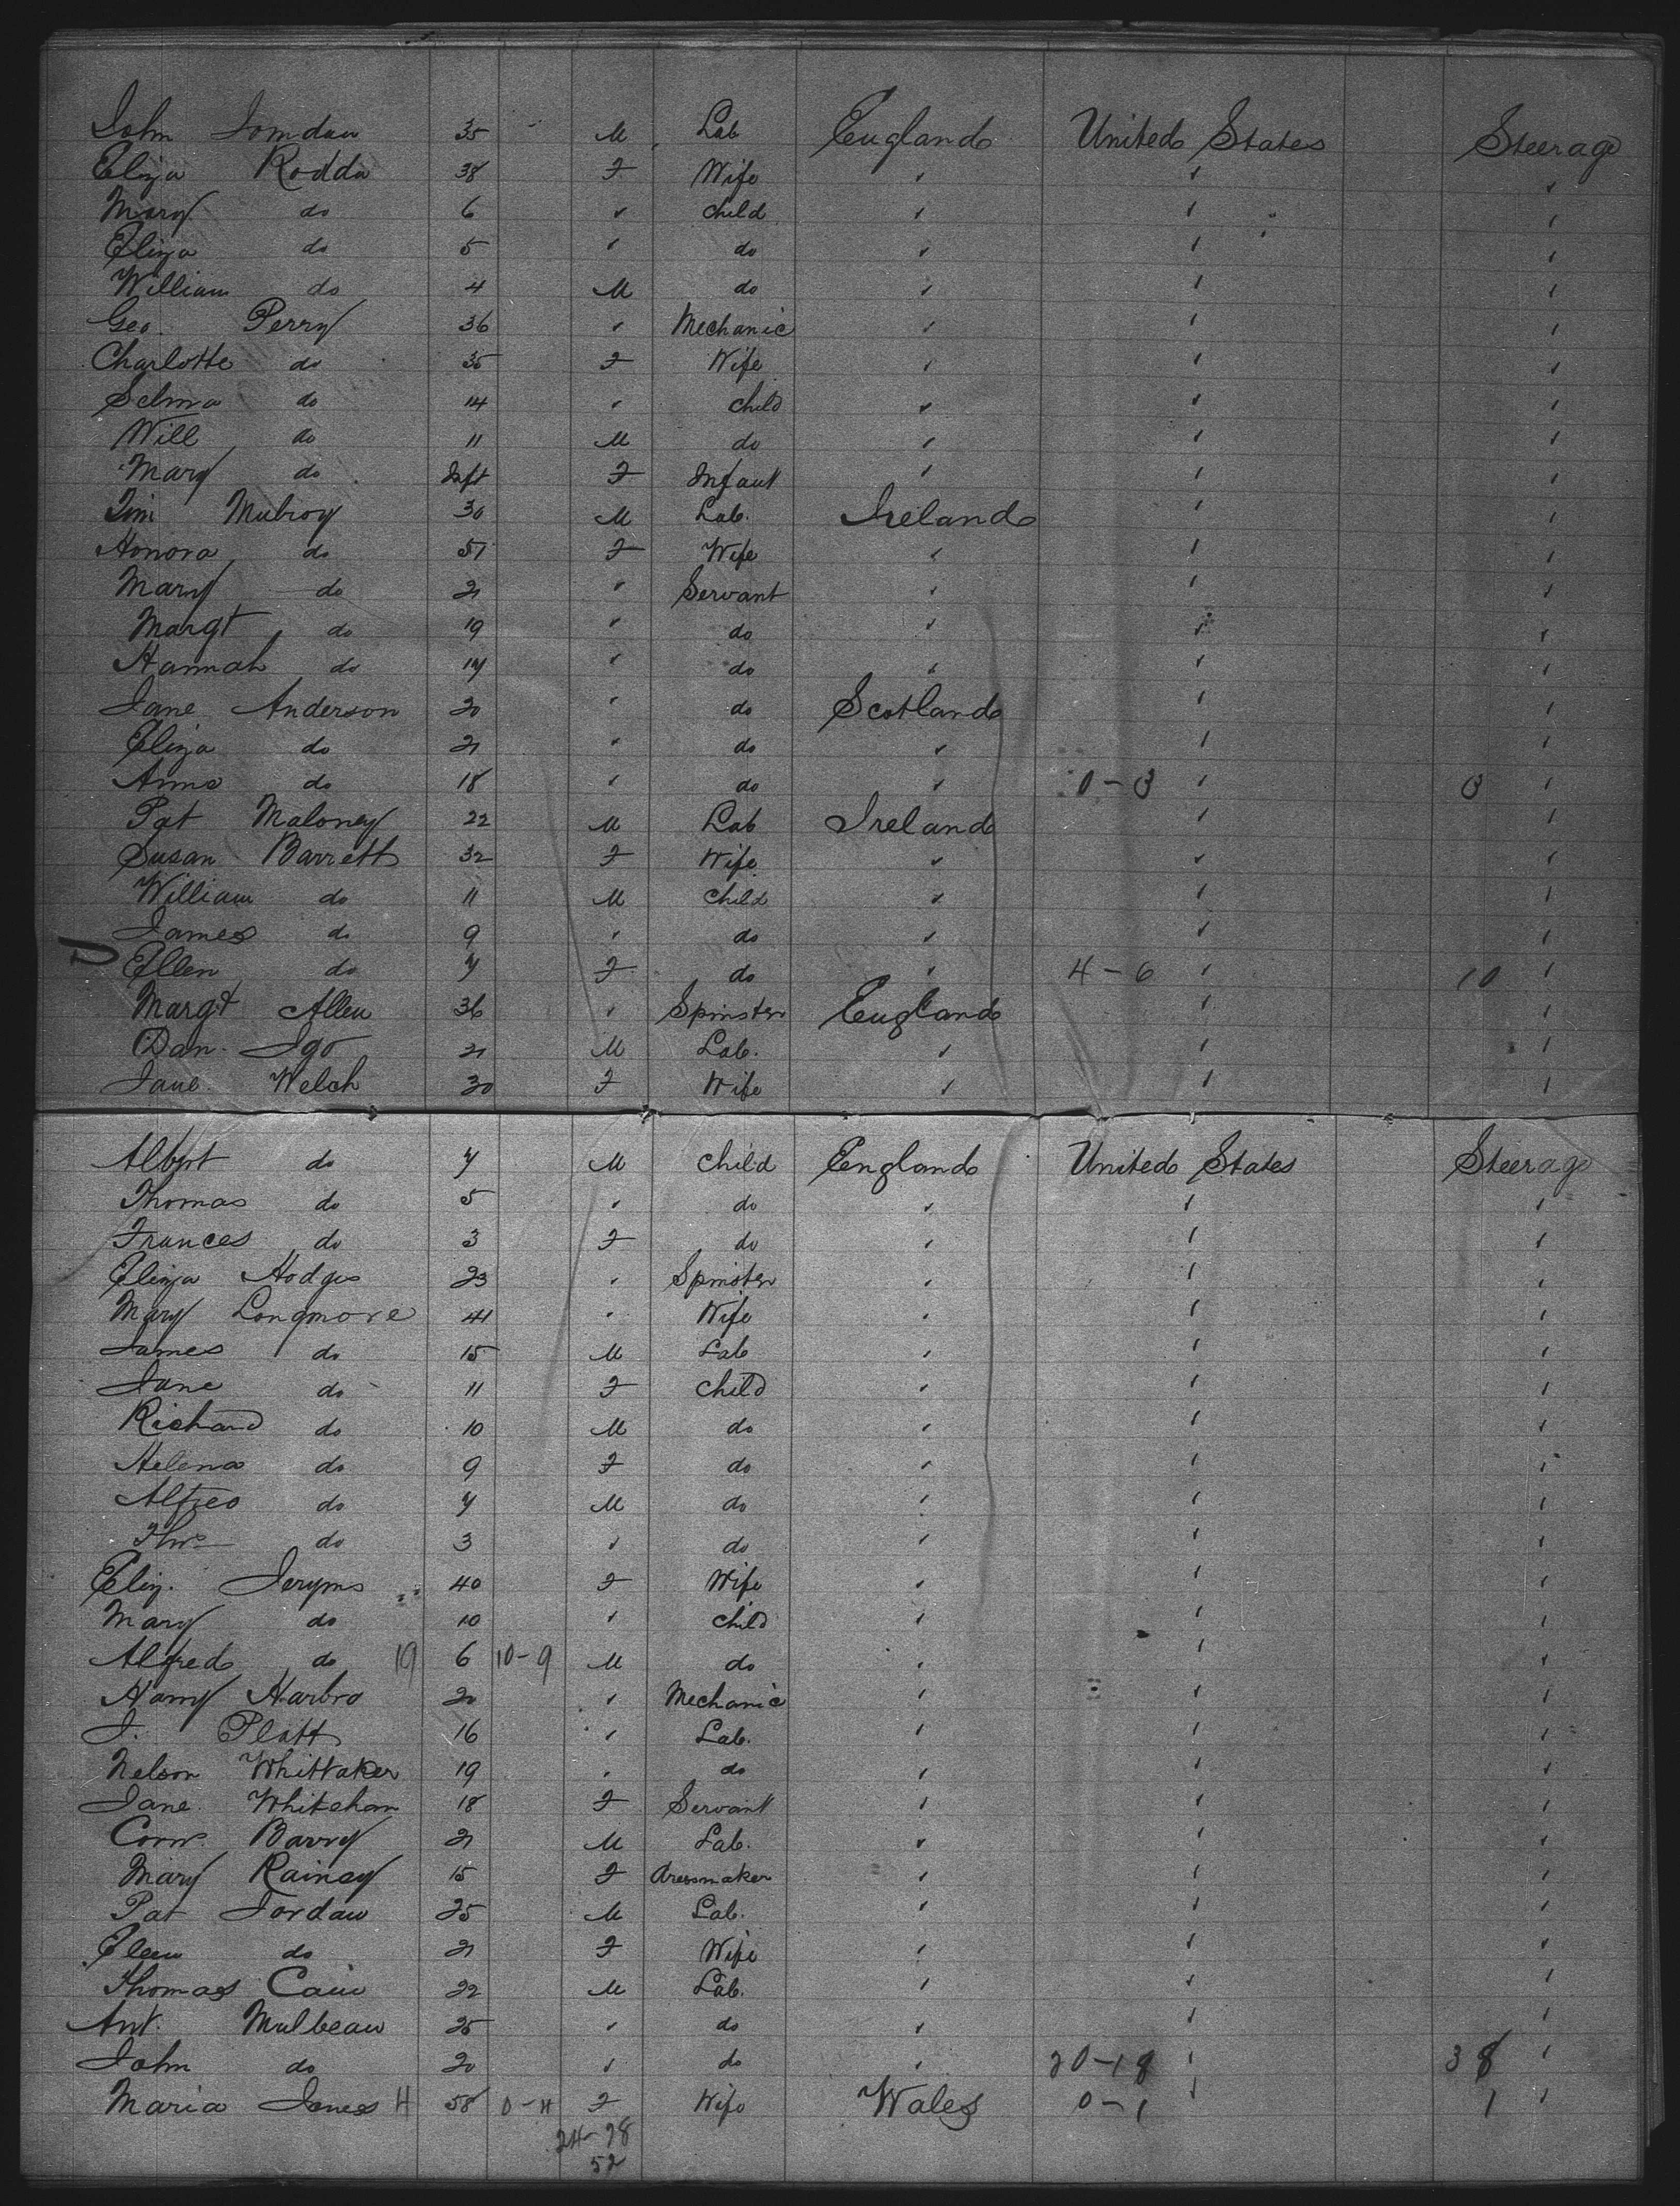 John Jomdan 35 M Lab England United States Steerage
Eliza Rodda 38 F Wife " " "
Mary do 6 " child " " "
Eliza do 5 " do " " "
William do 4 M do " " "
Geo. Perry 36 " Mechanic " " "
Charlotte do 35 F Wife " " "
Selma do 14 " child " " "
Will do 11 M do " " "
Mary do Inft F Infant " " "
Tim Mulroy 30 M Lab. Ireland " "
Honora do 51 F Wife " " "
Mary do 21 " Servant " " "
Margt do 19 " do " " "
Hannah do 14 " do " " "
Jane Anderson 20 " do Scotland " "
Eliza do 21 " do " " "
Anna do 18 " do " 0-3 " 3 "
Pat Maloney 22 M Lab Ireland " "
Susan Barrett 32 F Wife " " "
William do 11 M child " " "
James do 9 " do " " "
Ellen do 7 F do " 4-6 " 10 "
Margt Allen 36 " Spinster England " "
Dan. Igo 21 M Lab. " " "
Jane Welch 30 F Wife " " "
Albert do 7 M child England United States Steerage
Thomas do 5 " do " " "
Frances do 3 F do " " "
Eliza Hodges 23 " Spinster " " "
Mary Longmore 41 " Wife " " "
James do 15 M Lab " " "
Jane do 11 F child " " "
Richard do 10 M do " " "
Helena do 9 F do " " "
Alfred do 7 M do " " "
Thos do 3 " do " " "
Eliz. Jeryms 40 F Wife " " "
Mary do 10 " child " " "
Alfred do 19 6 10-9 M do " " "
Harry Harbro 20 " Mechanic " " "
J. Platt 16 " Lab. " " "
Nelson Whittaker 19 " do " " "
Jane Whiteham 18 F Servant " " "
Corn. Barry 21 M Lab. " " "
Mary Rainey 15 F dressmaker " " "
Pat Jordan 25 M Lab. " " "
Ellen do 21 F Wife " " "
Thomas Cain 22 M Lab. " " "
Ant. Mulbeau 25 " do " " "
John do 20 " do " 20-18 " 38 "
Maria Jones H 58 0-H F Wife Wales 0-1 " 1 "
24-28
52